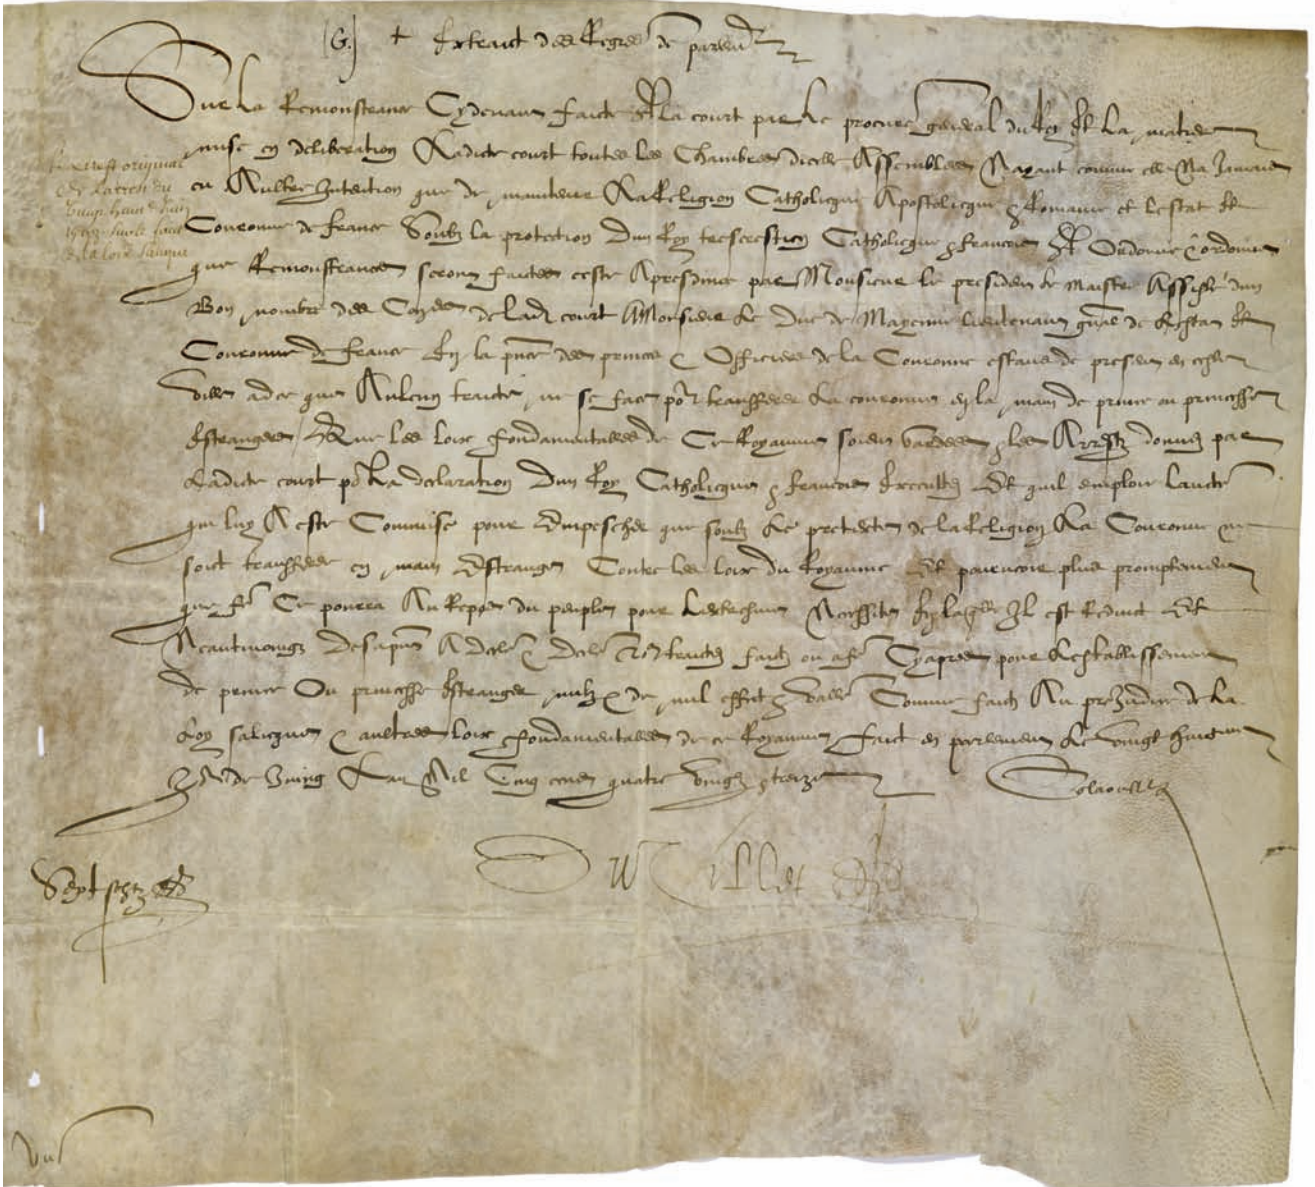 [G.] + Extraict des Regrez de parlemt
Sur la Remonstrance Cydevant faicte A la court par Le procureur general du Roy Et La matiere
mise en deliberation Ladicte court toutes les Chambres dicelle Assemblees Nayant comme elle Na Jamais
eu Aultre Intention que de maintenir La Religion Catholicque Apostolicque & Romaine et lestat Et
Couronne de france Soubz la protection Dun Roy trescrestien Catholicque & francois A Ordonne & ordonne
que Remonstrances seront faictes ceste Apresdinee par Monsieur le president le Maistre Assisté dun
Bon nombre des Conrs de lad court A Monsieur Le Duc de Mayenne lieutenant gnal de Lestat Et
Couronne de france En la pnce des princes & Officiers de la Couronne estans de present en ceste
ville a ce que Aulcun traicté ne se face por transferer La couronne en la main de prince ou princesse
Estrangers Que les loix fondamentalles de Ce Royaume soient gardees & les Arrestz donnez par
Ladicte court por La declaration Dun Roy Catholicque & francois Executez Et quil emploie lauctte
qui luy A este Commise pour Empescher que soubz Le pretexte de la Religion La Couronne ne
soit transferee en main Estrangere Contre les loix du Royaume Et pourveoir plus promptement
que fe Ce pourra Au Repos du peuple pour Lextreme Necessite En laqlle Il est Reduict Et
Neantmoings des apnt A declé & declé ts traictez faictz ou a fe Cy apres pour Lestablissement
de prince Ou princesse Estrangere nulz & de nul effect & valler Comme faictz Au preJudice de La
Loy salicque & aultres loix fondamentalles de ce Royaume faict en parlement Le vingt huictme
Jor de Juing Lan Mil Cinq cens quatre vingtz & treize
Du Tillet
Sept